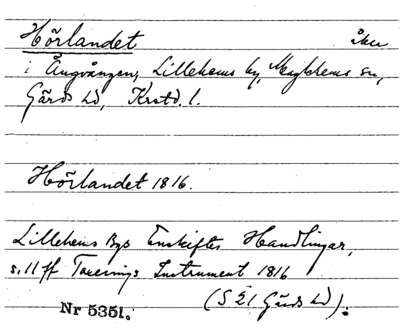 Hörlandet åker
i Ängvången, Lillehems by, Maglehems sn,
Gärds hd, Krstd. l.
Hörlandet 1816.
Lillehems Bys Enskiftes Handlingar,
s. 11 ff Taxerings Instrument 1816
(S 21 Gärds hd).
Nr 5351.